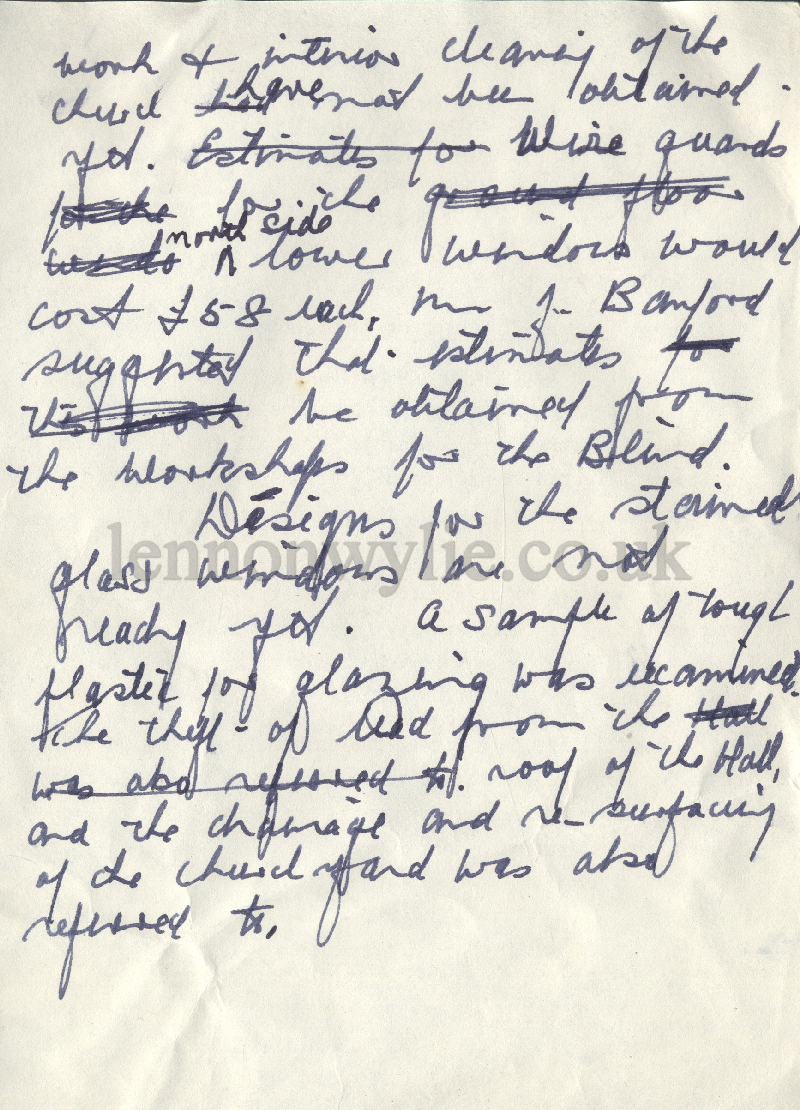 work & interior cleaning of the
church had have not been obtained
yet. Estimates for Wire guards
for the for the ground floor
windo north side lower windows would
cost £58 each. Mr J. Bamford
suggested that estimates for
this work be obtained from
the Workshops for the Blind.
Designs for the stained
glass windows are not
ready yet. A sample of tough
plastic for glazing was examined.
The theft of lead from the Hall
was also referred to. roof of the Hall,
and the drainage and re-surfacing
of the church yard was also
referred to.
lennonwylie.co.uk